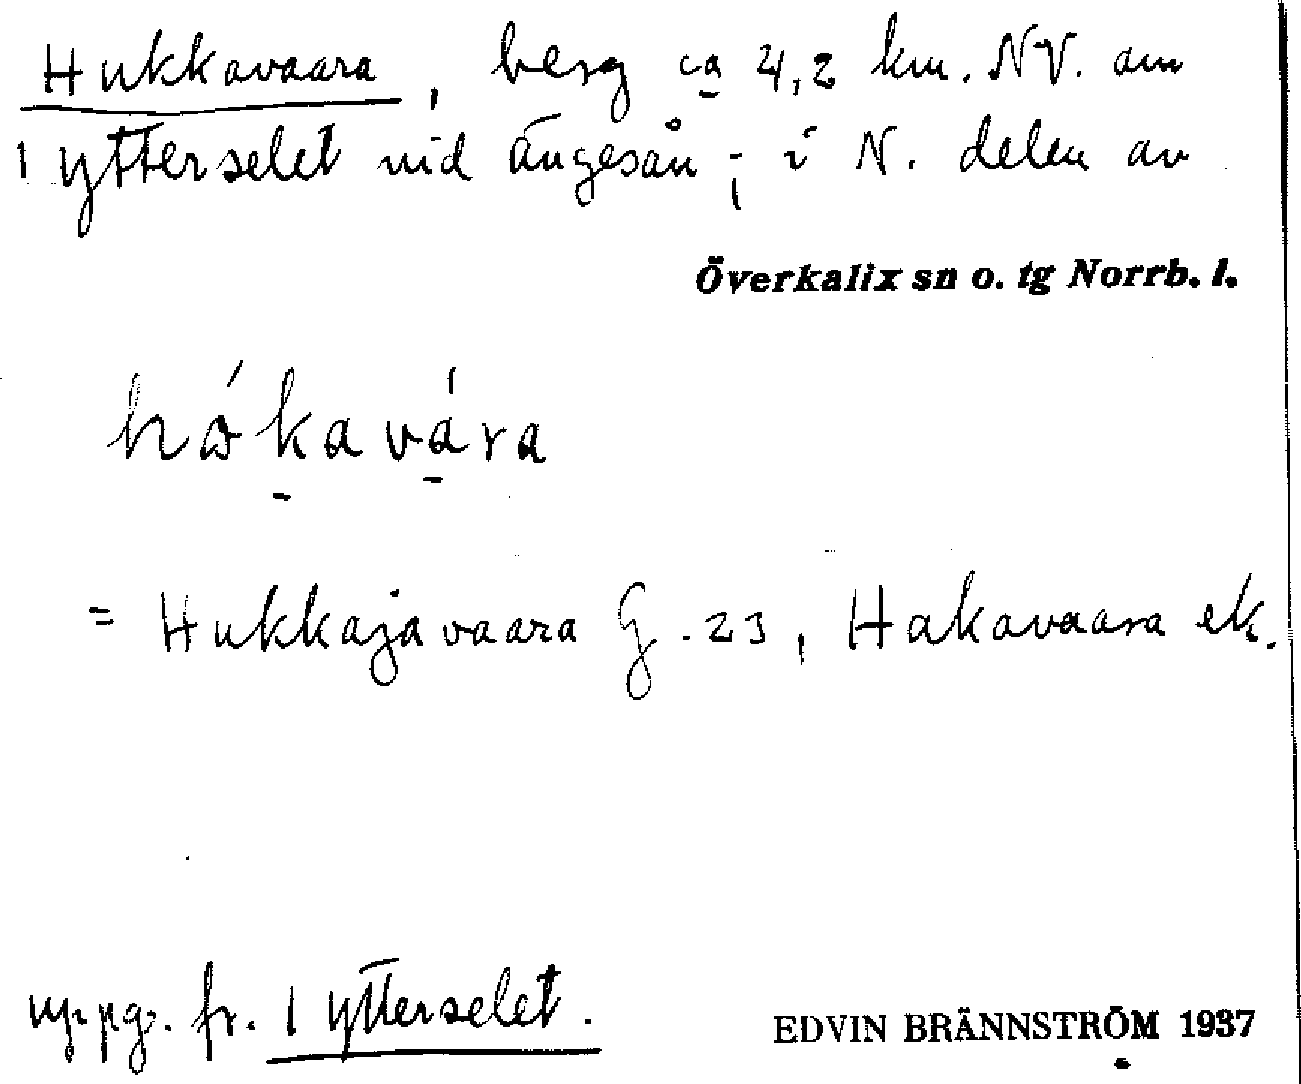 Hukkavaara, berg ca 4,2 km. NV. om
1 ytterselet vid ängesån; i N. delen av
Överkalix sn o. tg Norrb. l.
hókavára
= Hukkajavaara G. 23, Hakavaara ek.
uppg. fr. 1 ytterselet.
EDVIN BRÄNNSTRÖM 1937